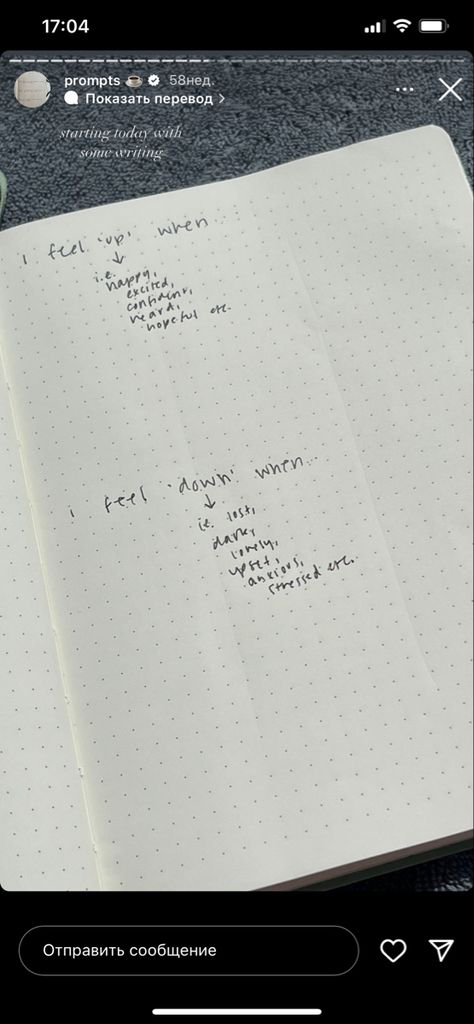 17:04
prompts ☕ 58нед.
Показать перевод >
starting today with
some writing
I feel 'up' when...
↓
i.e.
happy,
excited,
confident,
heard,
hopeful etc.
I feel 'down' when...
↓
ie. lost,
dark,
lonely,
upset,
anxious,
stressed etc.
Отправить сообщение